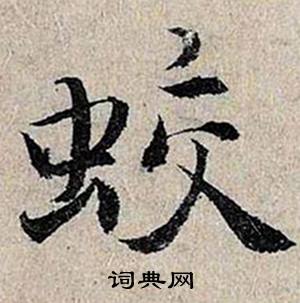 蛟
词典网